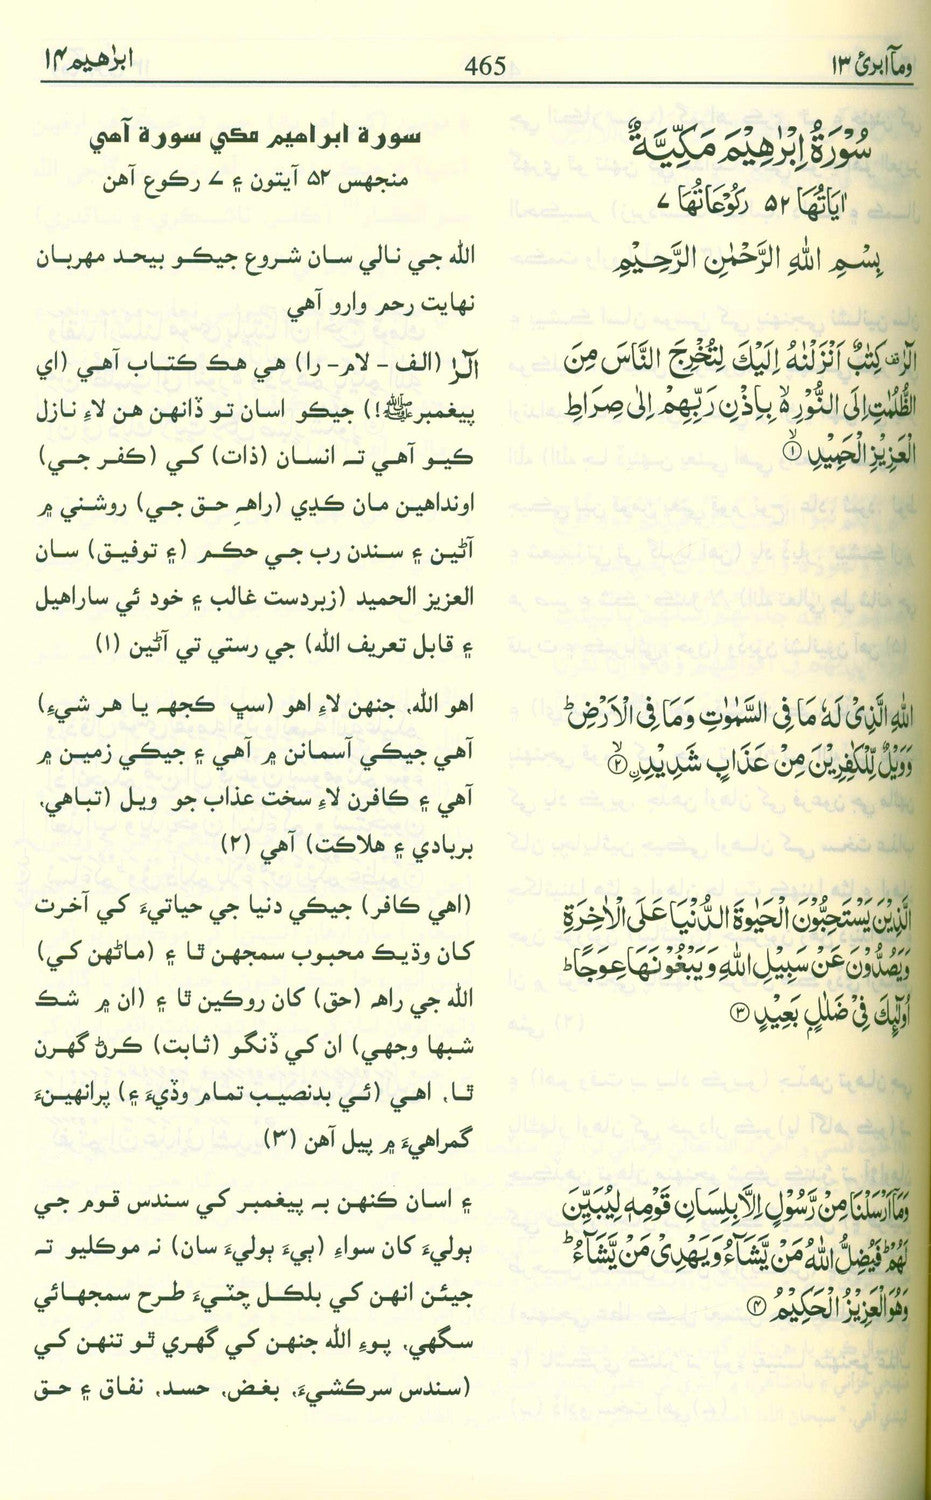 ومآ ابرئ ١٣
465
ابرٰهيم ١٤
سُوْرَةُ اِبْرٰهِيْمَ مَكِّيَّةٌ
اٰيَاتُهَا ٥٢ رَكُوْعَاتُهَا ٧
بِسْمِ اللهِ الرَّحْمٰنِ الرَّحِيْمِ
الٓرٰ ۫ كِتٰبٌ اَنْزَلْنٰهُ اِلَيْكَ لِتُخْرِجَ النَّاسَ مِنَ
الظُّلُمٰتِ اِلَى النُّوْرِ ۙ بِاِذْنِ رَبِّهِمْ اِلٰى صِرَاطِ
الْعَزِيْزِ الْحَمِيْدِ ۙ ﴿١﴾
اللهِ الَّذِىْ لَهٗ مَا فِى السَّمٰوٰتِ وَمَا فِى الْاَرْضِ ؕ
وَوَيْلٌ لِّلْكٰفِرِيْنَ مِنْ عَذَابٍ شَدِيْدِ ۙ ﴿٢﴾
الَّذِيْنَ يَسْتَحِبُّوْنَ الْحَيٰوةَ الدُّنْيَا عَلَى الْاٰخِرَةِ
وَيَصُدُّوْنَ عَنْ سَبِيْلِ اللهِ وَيَبْغُوْنَهَا عِوَجًا ؕ
اُولٰٓئِكَ فِىْ ضَلٰلٍ بَعِيْدٍ ﴿٣﴾
وَمَآ اَرْسَلْنَا مِنْ رَّسُوْلٍ اِلَّا بِلِسَانِ قَوْمِهٖ لِيُبَيِّنَ
لَهُمْ ؕ فَيُضِلُّ اللهُ مَنْ يَّشَآءُ وَيَهْدِىْ مَنْ يَّشَآءُ ؕ
وَهُوَ الْعَزِيْزُ الْحَكِيْمُ ﴿٤﴾
سورة ابراهيم مڪي سورة آهي
منجهس ٥٢ آيتون ۽ ٧ رڪوع آهن
الله جي نالي سان شروع جيڪو بيحد مهربان
نهايت رحم وارو آهي
الٓرٰ (الف - لام- را) هي هڪ ڪتاب آهي (اي
پيغمبرﷺ!) جيڪو اسان تو ڏانهن هن لاءِ نازل
ڪيو آهي تہ انسان (ذات) کي (ڪفر جي)
اونداهين مان ڪڍي (راهہِ حق جي) روشني ۾
آڻين ۽ سندن رب جي حڪم (۽ توفيق) سان
العزيز الحميد (زبردست غالب ۽ خود ئي ساراهيل
۽ قابل تعريف الله) جي رستي تي آڻين (١)
اهو الله، جنهن لاءِ اهو (سڀ ڪجهہ يا هر شيءِ)
آهي جيڪي آسمانن ۾ آهي ۽ جيڪي زمين ۾
آهي ۽ ڪافرن لاءِ سخت عذاب جو ويل (تباهي،
بربادي ۽ هلاڪت) آهي (٢)
(اهي ڪافر) جيڪي دنيا جي حياتيءَ کي آخرت
کان وڌيڪ محبوب سمجهن ٿا ۽ (ماڻهن کي)
الله جي راهہ (حق) کان روڪين ٿا ۽ (ان ۾ شڪ
شبها وجهي) ان کي ڏنگو (ثابت) ڪرڻ گهرن
ٿا، اهي (ئي بدنصيب تمام وڏيءَ ۽) پرانهينءَ
گمراهيءَ ۾ پيل آهن (٣)
۽ اسان ڪنهن بہ پيغمبر کي سندس قوم جي
ٻوليءَ کان سواءِ (ٻيءَ ٻوليءَ سان) نہ موڪليو تہ
جيئن انهن کي بلڪل چٽيءَ طرح سمجهائي
سگهي، پوءِ الله جنهن کي گهري ٿو تنهن کي
(سندس سرڪشيءَ، بغض، حسد، نفاق ۽ حق